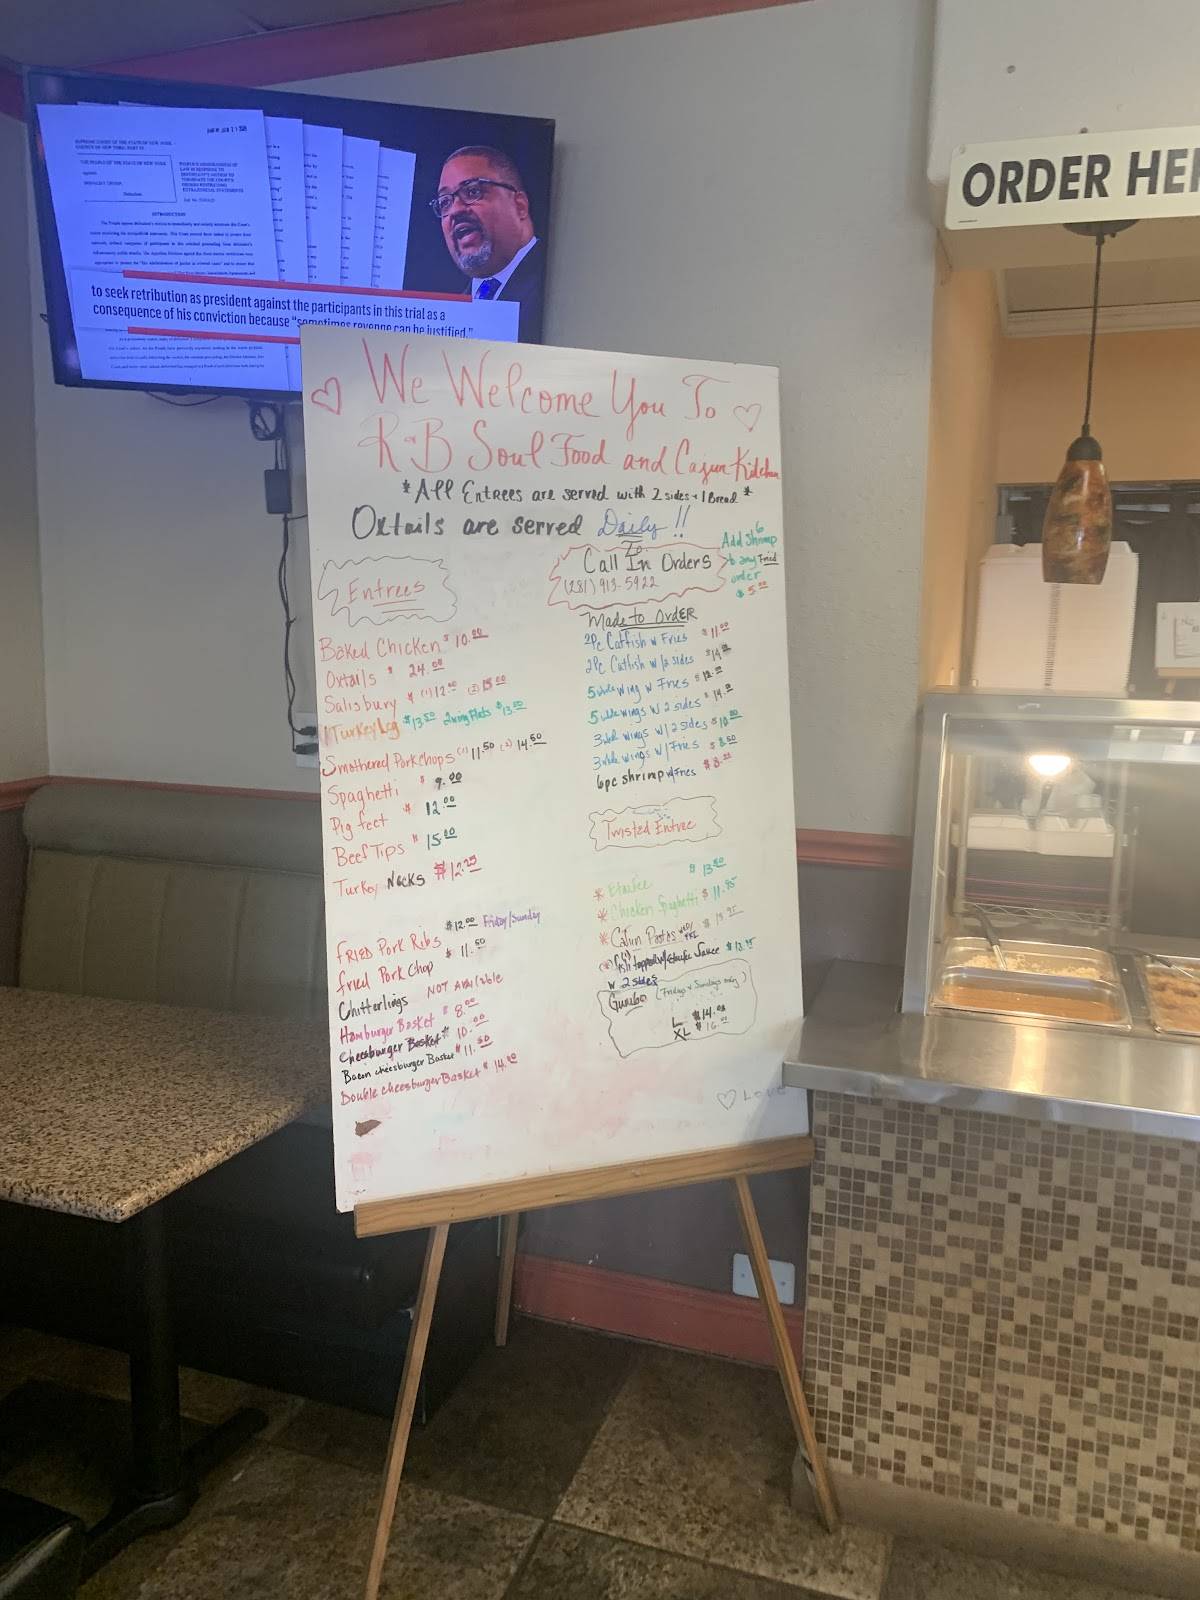 SUPREME COURT OF THE STATE OF NEW YORK
THE PEOPLE OF THE STATE OF NEW YORK
against
DONALD J. TRUMP,
Defendant.
INTRODUCTION
to seek retribution as president against the participants in this trial as a
consequence of his conviction because "sometimes revenge can be justified."
ORDER HE
We Welcome You To
R&B Soul Food and Cajun Kitchen
*All Entrees are served with 2 sides + 1 Bread *
Oxtails are served Daily !!
Entrees
Baked Chicken $ 10.00
Oxtails $ 24.00
Salisbury $ (1) 12.00 (2) 15.00
1 Turkey Leg $13.50 2 wing flats $13.50
Smothered Pork Chops (1) 11.50 (2) 14.50
Spaghetti $ 9.00
Pig feet $ 12.00
Beef Tips $ 15.00
Turkey Necks $12.25
$12.00 Friday/Sunday
Fried Pork Ribs
fried Pork Chop $ 11.50
Chitterlings NOT Available
Hamburger Basket $ 8.00
Cheesburger Basket $ 10.00
Bacon cheesburger Basket $ 11.50
Double cheesburger Basket $ 14.00
Call In Orders
(281) 913-5922
Add 6 Shrimp
to any Fried
order
$5.00
Made to Order
2Pc Catfish w Fries $11.00
2Pc Catfish w/2 sides $14.00
5 whole wing w Fries $12.00
5 whole wings w 2 sides $14.00
3 whole wings w/2 sides $10.00
3 whole wings w/Fries $8.50
6pc shrimp w/Fries $8.00
Twisted Entree
* Etoufee $ 13.50
* Chicken Spaghetti $ 11.95
* Cajun Pastas $ 13.95
(*) fish topped w/ Etoufee Sauce $13.95
w 2 sides
Gumbo (Fridays & Sundays only)
L $14.00
XL $16.00
LOVE